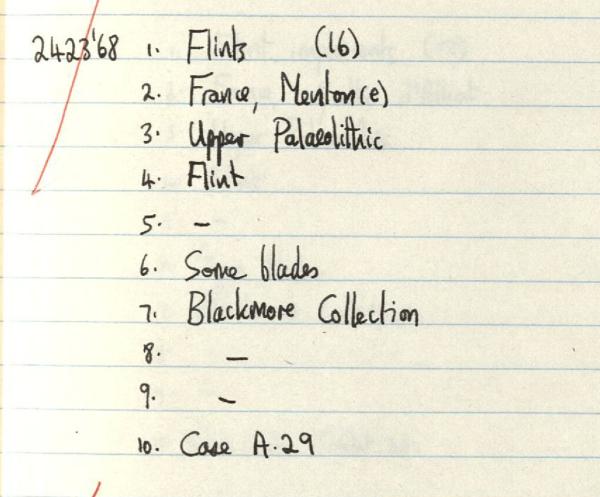 2423'68 1. Flints (16)
2. France, Menton(e)
3. Upper Palaeolithic
4. Flint
5. –
6. Some blades
7. Blackmore Collection
8. –
9. –
10. Case A.29